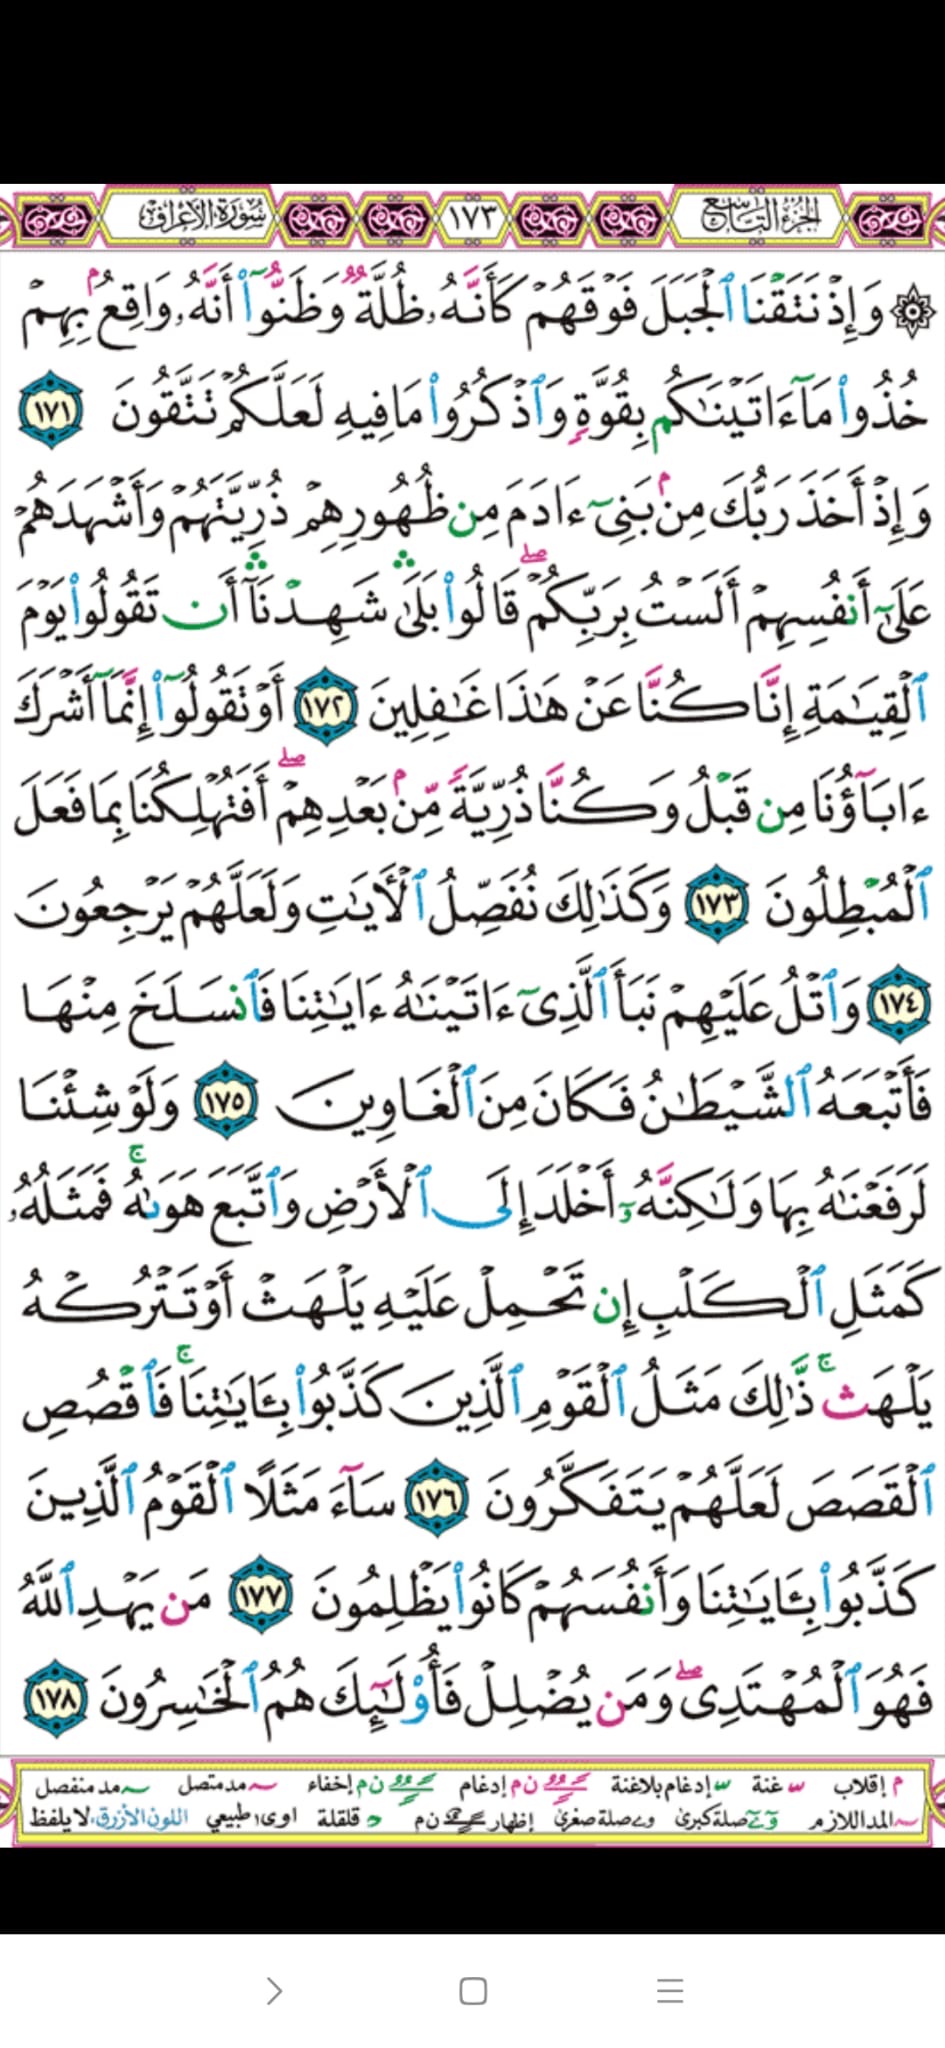 الجزء التاسع ١٧٣ سورة الأعراف
۞ وَإِذْ نَتَقْنَا ٱلْجَبَلَ فَوْقَهُمْ كَأَنَّهُۥ ظُلَّةٌ وَظَنُّوٓا۟ أَنَّهُۥ وَاقِعٌۢ بِهِمْ
خُذُوا۟ مَآ ءَاتَيْنَـٰكُم بِقُوَّةٍ وَٱذْكُرُوا۟ مَا فِيهِ لَعَلَّكُمْ تَتَّقُونَ ١٧١
وَإِذْ أَخَذَ رَبُّكَ مِنۢ بَنِىٓ ءَادَمَ مِن ظُهُورِهِمْ ذُرِّيَّتَهُمْ وَأَشْهَدَهُمْ
عَلَىٰٓ أَنفُسِهِمْ أَلَسْتُ بِرَبِّكُمْ ۖ قَالُوا۟ بَلَىٰ ۛ شَهِدْنَآ ۛ أَن تَقُولُوا۟ يَوْمَ
ٱلْقِيَـٰمَةِ إِنَّا كُنَّا عَنْ هَـٰذَا غَـٰفِلِينَ ١٧٢ أَوْ تَقُولُوٓا۟ إِنَّمَآ أَشْرَكَ
ءَابَآؤُنَا مِن قَبْلُ وَكُنَّا ذُرِّيَّةً مِّنۢ بَعْدِهِمْ ۖ أَفَتُهْلِكُنَا بِمَا فَعَلَ
ٱلْمُبْطِلُونَ ١٧٣ وَكَذَٰلِكَ نُفَصِّلُ ٱلْـَٔايَـٰتِ وَلَعَلَّهُمْ يَرْجِعُونَ
١٧٤ وَٱتْلُ عَلَيْهِمْ نَبَأَ ٱلَّذِىٓ ءَاتَيْنَـٰهُ ءَايَـٰتِنَا فَٱنسَلَخَ مِنْهَا
فَأَتْبَعَهُ ٱلشَّيْطَـٰنُ فَكَانَ مِنَ ٱلْغَاوِينَ ١٧٥ وَلَوْ شِئْنَا
لَرَفَعْنَـٰهُ بِهَا وَلَـٰكِنَّهُۥٓ أَخْلَدَ إِلَى ٱلْأَرْضِ وَٱتَّبَعَ هَوَىٰهُ ۚ فَمَثَلُهُۥ
كَمَثَلِ ٱلْكَلْبِ إِن تَحْمِلْ عَلَيْهِ يَلْهَثْ أَوْ تَتْرُكْهُ
يَلْهَث ۚ ذَّٰلِكَ مَثَلُ ٱلْقَوْمِ ٱلَّذِينَ كَذَّبُوا۟ بِـَٔايَـٰتِنَا ۚ فَٱقْصُصِ
ٱلْقَصَصَ لَعَلَّهُمْ يَتَفَكَّرُونَ ١٧٦ سَآءَ مَثَلًا ٱلْقَوْمُ ٱلَّذِينَ
كَذَّبُوا۟ بِـَٔايَـٰتِنَا وَأَنفُسَهُمْ كَانُوا۟ يَظْلِمُونَ ١٧٧ مَن يَهْدِ ٱللَّهُ
فَهُوَ ٱلْمُهْتَدِى ۖ وَمَن يُضْلِلْ فَأُو۟لَـٰٓئِكَ هُمُ ٱلْخَـٰسِرُونَ ١٧٨
م إقلاب غنة إدغام بلاغنة ن م إدغام ن م إخفاء مد متصل مد منفصل
المد اللازم صلة كبرى صلة صغرى إظهار ن م قلقلة اوى طبيعي اللون الأزرق لا يلفظ